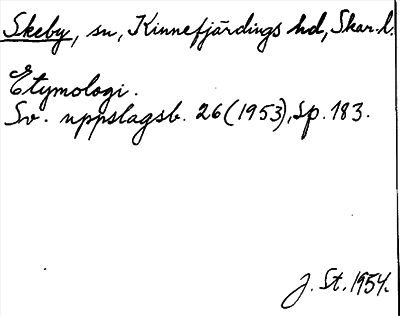 Skeby, sn, Kinnefjärdings hd, Skar. l.
Etymologi.
Sv. uppslagsb. 26 (1953), Sp. 183.
J. St. 1954.